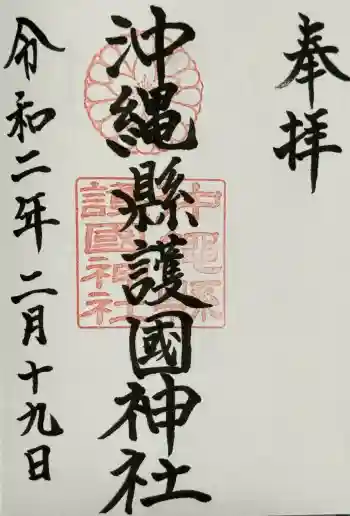 奉拝
沖縄縣護國神社
沖縄縣
護國神社
令和二年二月十九日